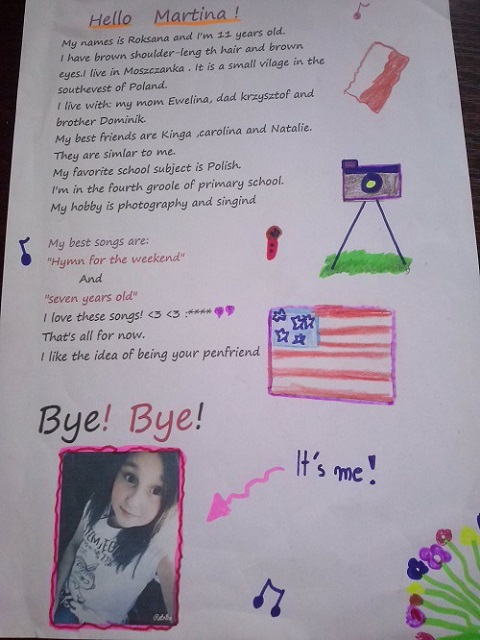 Hello Martina !
My names is Roksana and I'm 11 years old.
I have brown shoulder-leng th hair and brown
eyes.I live in Moszczanka . It is a small vilage in the
southevest of Poland.
I live with: my mom Ewelina, dad krzysztof and
brother Dominik.
My best friends are Kinga ,carolina and Natalie.
They are simlar to me.
My favorite school subject is Polish.
I'm in the fourth groole of primary school.
My hobby is photography and singind
My best songs are:
"Hymn for the weekend"
And
"seven years old"
I love these songs! <3 <3 :****
That's all for now.
I like the idea of being your penfriend
Bye! Bye!
It's me!